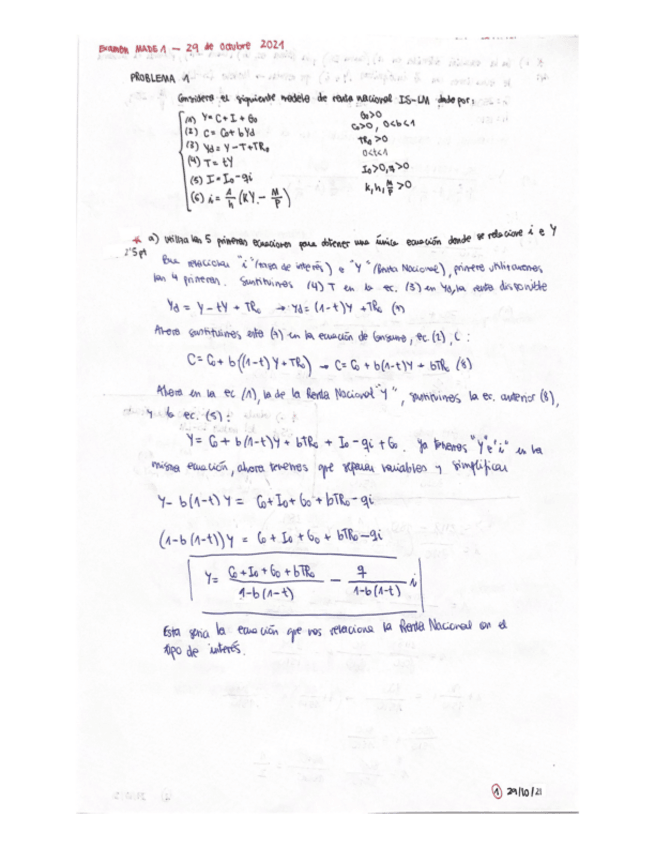 Examen MADE 1 — 29 de octubre 2021
PROBLEMA 1
Considera el siguiente modelo de renta nacional IS-LM dado por:
(1) Y = C + I + G₀ G₀>0
(2) C = C₀ + bYd C₀>0, 0<b<1
(3) Yd = Y - T + TR₀ TR₀>0
(4) T = tY 0<t<1
(5) I = I₀ - qi I₀>0, q>0
(6) i = 1/h (KY - M/P) k, h, M/P >0
* a) Utiliza las 5 primeras ecuaciones para obtener una única ecuación donde se relacione i e Y
2'5 pt
Para relacionar "i" (tasa de interés) e "Y" (Renta Nacional), primero utilizaremos
las 4 primeras. Sustituimos (4) T en la ec. (3) en Yd, la renta disponible
Yd = Y - tY + TR₀ → Yd = (1-t)Y + TR₀ (7)
Ahora sustituimos esto (7) en la ecuación de Consumo, ec. (2), C:
C = C₀ + b((1-t)Y + TR₀) → C = C₀ + b(1-t)Y + bTR₀ (8)
Ahora en la ec (1), la de la Renta Nacional "Y", sustituimos la ec. anterior (8),
y la ec. (5):
Y = C₀ + b(1-t)Y + bTR₀ + I₀ - qi + G₀. Ya tenemos "Y" e "i" en la
misma ecuación, ahora tenemos que separar variables y simplificar
Y - b(1-t)Y = C₀ + I₀ + G₀ + bTR₀ - qi
(1-b(1-t))Y = C₀ + I₀ + G₀ + bTR₀ - qi
Y = (C₀ + I₀ + G₀ + bTR₀)/(1-b(1-t)) - q/(1-b(1-t)) i
Esta sería la ecuación que nos relaciona la Renta Nacional con el
tipo de interés.
1 29/10/21